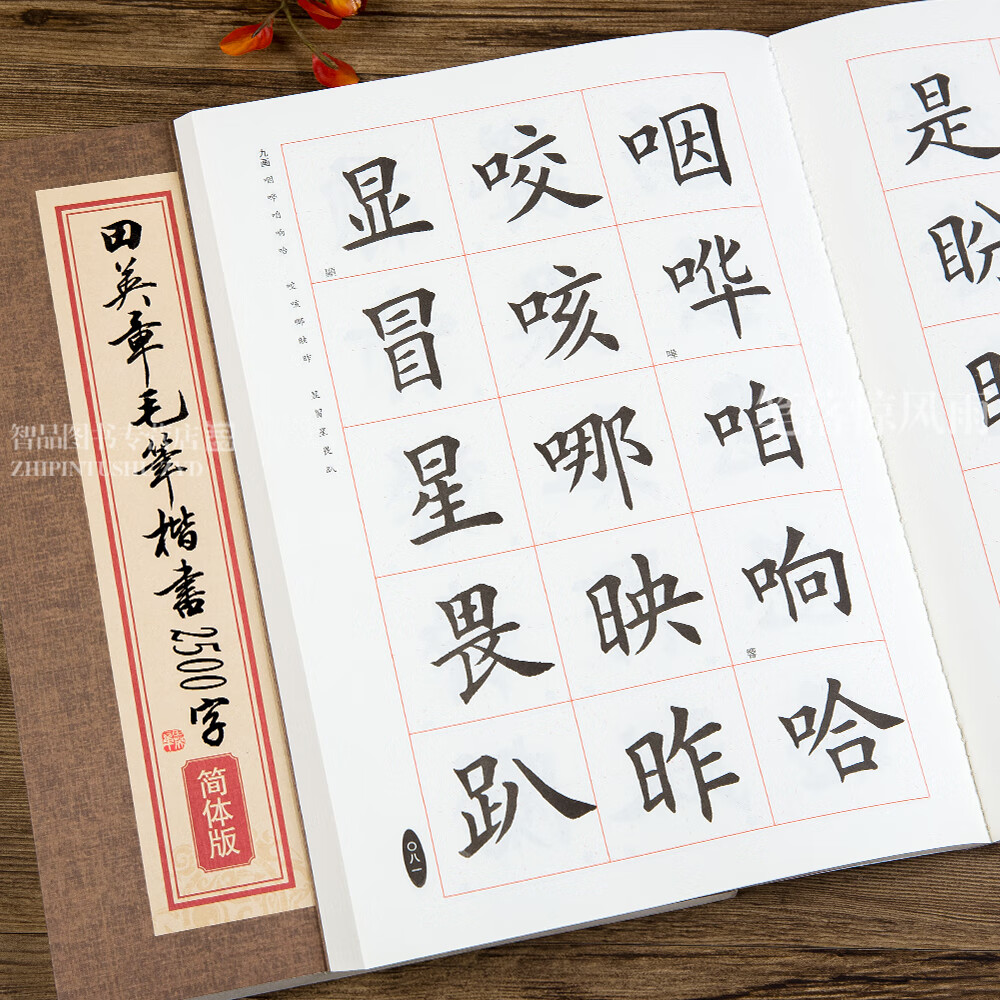 田英章毛笔楷書2500字
简体版
九画
咽哗咱响哈
咬咳哪映昨
显冒星畏趴
咽哗咱响哈
咬咳哪映昨
显冒星畏趴
嘩
響
顯
〇八一
是
盼
智品图书专营店
ZHIPINTUSHU